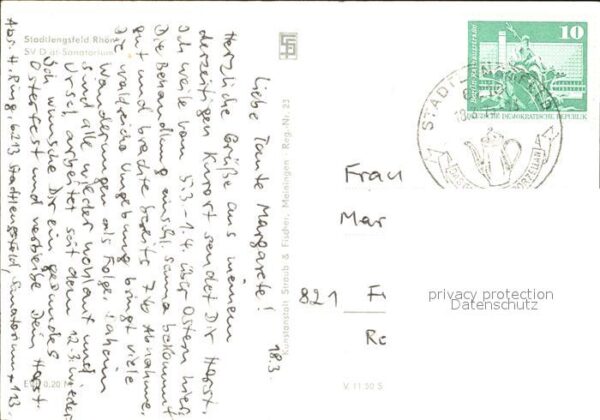 Stadtlengsfeld Rhön
SV Diät-Sanatorium
18.3.
Liebe Tante Margarete!
Herzliche Grüße aus meinem
derzeitigen Kurort sendet Dir Horst.
Ich weile vom 5.3.-1.4. über Ostern hier.
Die Behandlung einschl. Sauna bekommt
gut und brachte bereits 7 kg Abnahme.
Die waldreiche Umgebung bringt viele
Wanderungen als Folge. Daheim
sind alle wieder wohlauf und
Ursel arbeitet seit dem 12.3. wieder
Ich wünsche Dir ein gesundes
Osterfest und verbleibe Dein Horst.
Abs. H. Ring, 6213 Stadtlengsfeld, Sanatorium 123
EVP 0,20 M
Kunstanstalt Straub & Fischer, Meiningen · Reg.-Nr. 23
V 11 50 S
10
DEUTSCHE DEMOKRATISCHE REPUBLIK
STADTLENGSFELD
PORZELLAN
Frau
Mar
821 F
Re
privacy protection
Datenschutz